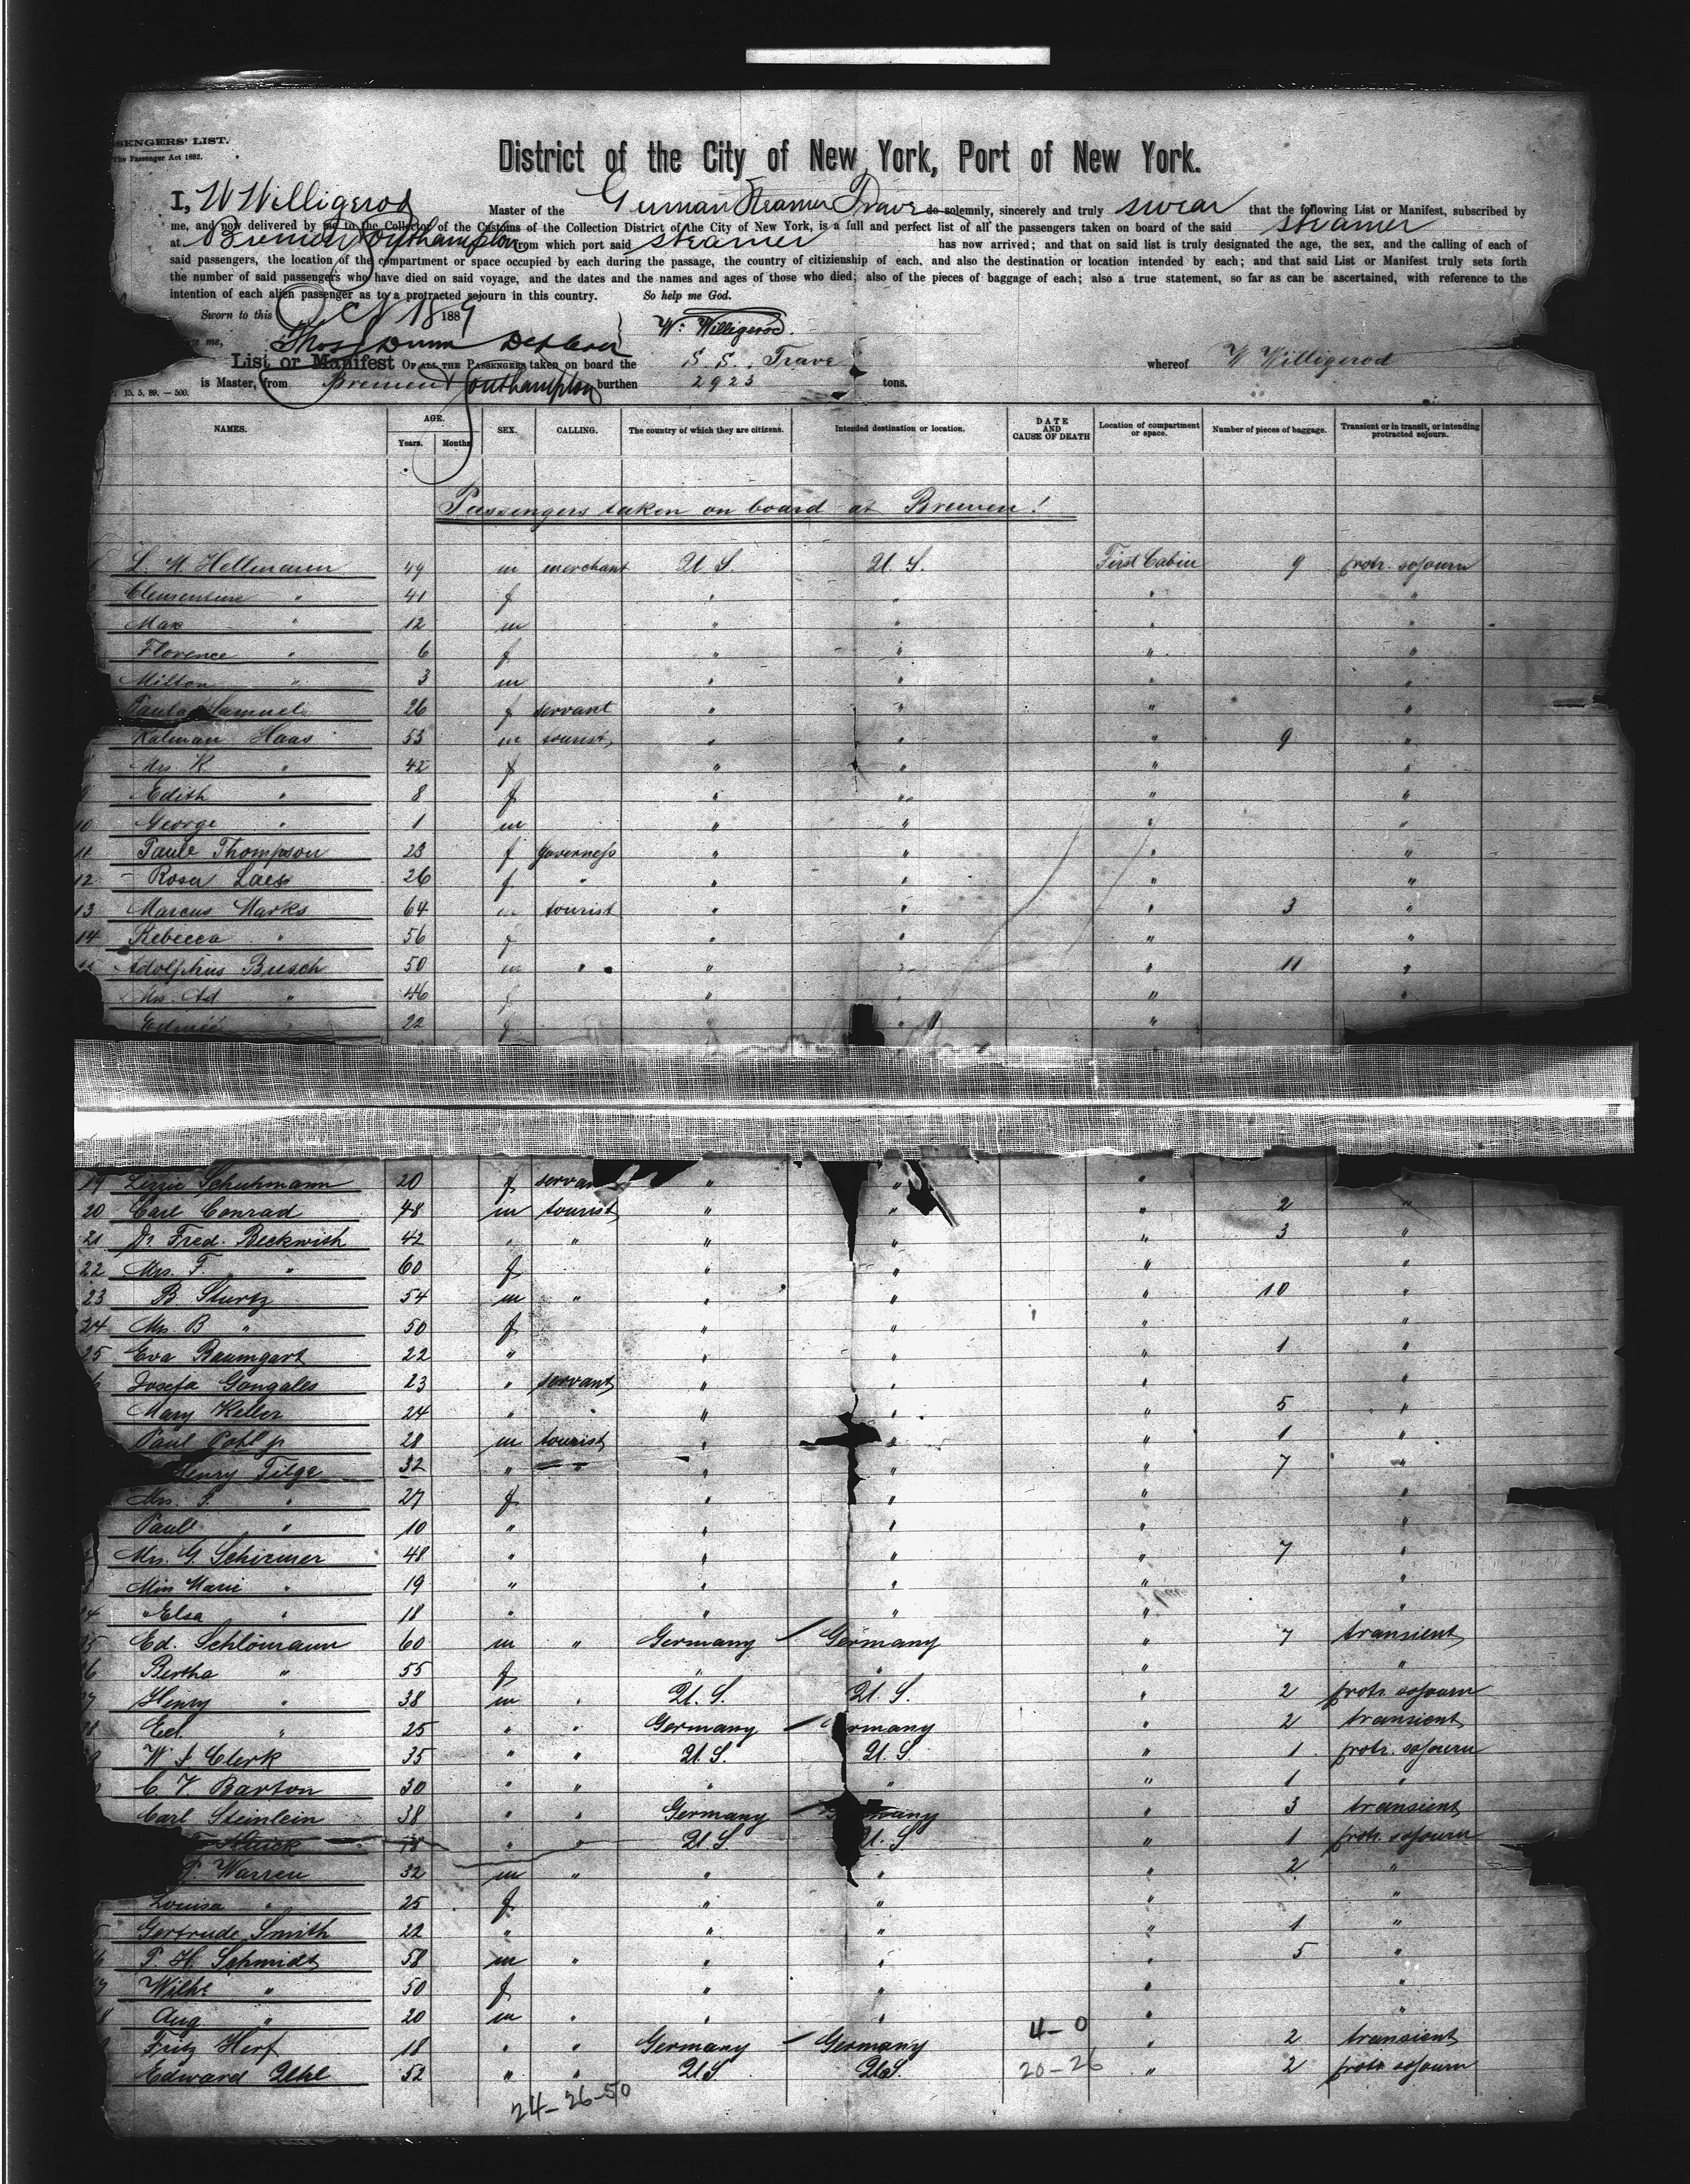 SENGERS' LIST.
The Passenger Act 1882.
District of the City of New York, Port of New York.
I, W Willigerod Master of the German Steamer Trave do solemnly, sincerely and truly swear that the following List or Manifest, subscribed by
me, and now delivered by me to the Collector of the Customs of the Collection District of the City of New York, is a full and perfect list of all the passengers taken on board of the said steamer
at Bremen & Southampton from which port said steamer has now arrived; and that on said list is truly designated the age, the sex, and the calling of each of
said passengers, the location of the compartment or space occupied by each during the passage, the country of citizienship of each, and also the destination or location intended by each; and that said List or Manifest truly sets forth
the number of said passengers who have died on said voyage, and the dates and the names and ages of those who died; also of the pieces of baggage of each; also a true statement, so far as can be ascertained, with reference to the
intention of each alien passenger as to a protracted sojourn in this country. So help me God.
Sworn to this Oct 18 1889
me, Thos Dunn W. Willigerod.
List or Manifest OF ALL THE PASSENGERS taken on board the S. S. Trave whereof W Willigerod
is Master, from Bremen & Southampton burthen 2923 tons.
15. 5. 89. — 500.
NAMES. AGE. Years. Months SEX. CALLING. The country of which they are citizens. Intended destination or location. DATE AND CAUSE OF DEATH Location of compartment or space. Number of pieces of baggage. Transient or in transit, or intending protracted sojourn.
Passengers taken on board at Bremen!
Hellmann 49 m merchant U. S. U. S. First Cabin 9 protr. sojourn
Clementine " 41 f " " " "
Max " 12 m " " " "
Florence " 6 f " " " "
Milton " 3 m " " " "
Paula Samuel 26 f servant " " " "
Kalman Haas 53 m tourist " " " 9 "
Mrs K " 42 f " " " "
9 Edith " 8 f " " " "
10 George " 1 m " " " "
11 Paule Thompson 23 f governess " " " "
12 Rosa Laes 26 f " " " " "
13 Marcus Marks 64 m tourist " " " 3 "
14 Rebecca " 56 f " " " "
15 Adolphus Busch 50 m " " " " 11 "
Mrs. Ad " 46 f " " " "
Edmée 22 f " " "
19 Schuhmann 20 f servant " " "
20 Carl Conrad 48 m tourist " " " 2 "
21 Dr Fred. Beckwith 42 " " " " " 3 "
22 Mrs. F. " 60 f " " " "
23 B. Sturtz 54 m " " " " 10 "
24 Mrs. B " 50 f " " " "
25 Eva Baumgart 22 " " " " 1 "
Josefa Gongales 23 " servant " " " "
Mary Keller 24 " " " " " 5 "
Paul Pohl jr 28 m tourist " " " 1 "
Henry Tilge 32 " " " " " 7 "
Mrs. " 27 f " " " "
Paul " 10 " " " " "
Mrs. G. Schirmer 48 " " " " 7 "
Miss Marie " 19 " " " " "
" Elsa " 18 " " " " "
Ed. Schlömann 60 m " Germany Germany " 7 transient
Bertha " 55 f " " " "
Henry " 38 m " U. S. U. S. " 2 protr. sojourn
Ed. " 25 " " Germany Germany " 2 transient
Clerk 35 " " U. S. U. S " 1 protr. sojourn
Barton 30 " " " " " 1 "
Carl Steinlein 38 " " Germany Germany " 3 transient
18 " " U. S. U. S " 1 protr. sojourn
Warren 32 m " " " " 2 "
Louisa " 25 f " " " "
Gertrude Smith 22 " " " " 1 "
P. H. Schmidt 58 m " " " " 5 "
Wilhe " 50 f " " " "
Aug " 20 m " " " " "
Fritz Herf 18 " " Germany Germany 4-0 " 2 transient
Edward Uhl 52 " " US US. 20-26 " 2 protr sojourn
24-26-50